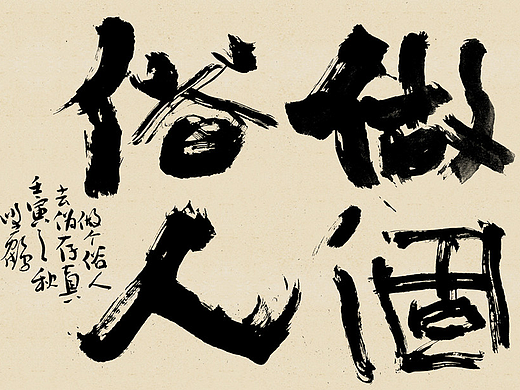 做個
俗人
做个俗人
去伪存真
壬寅之秋